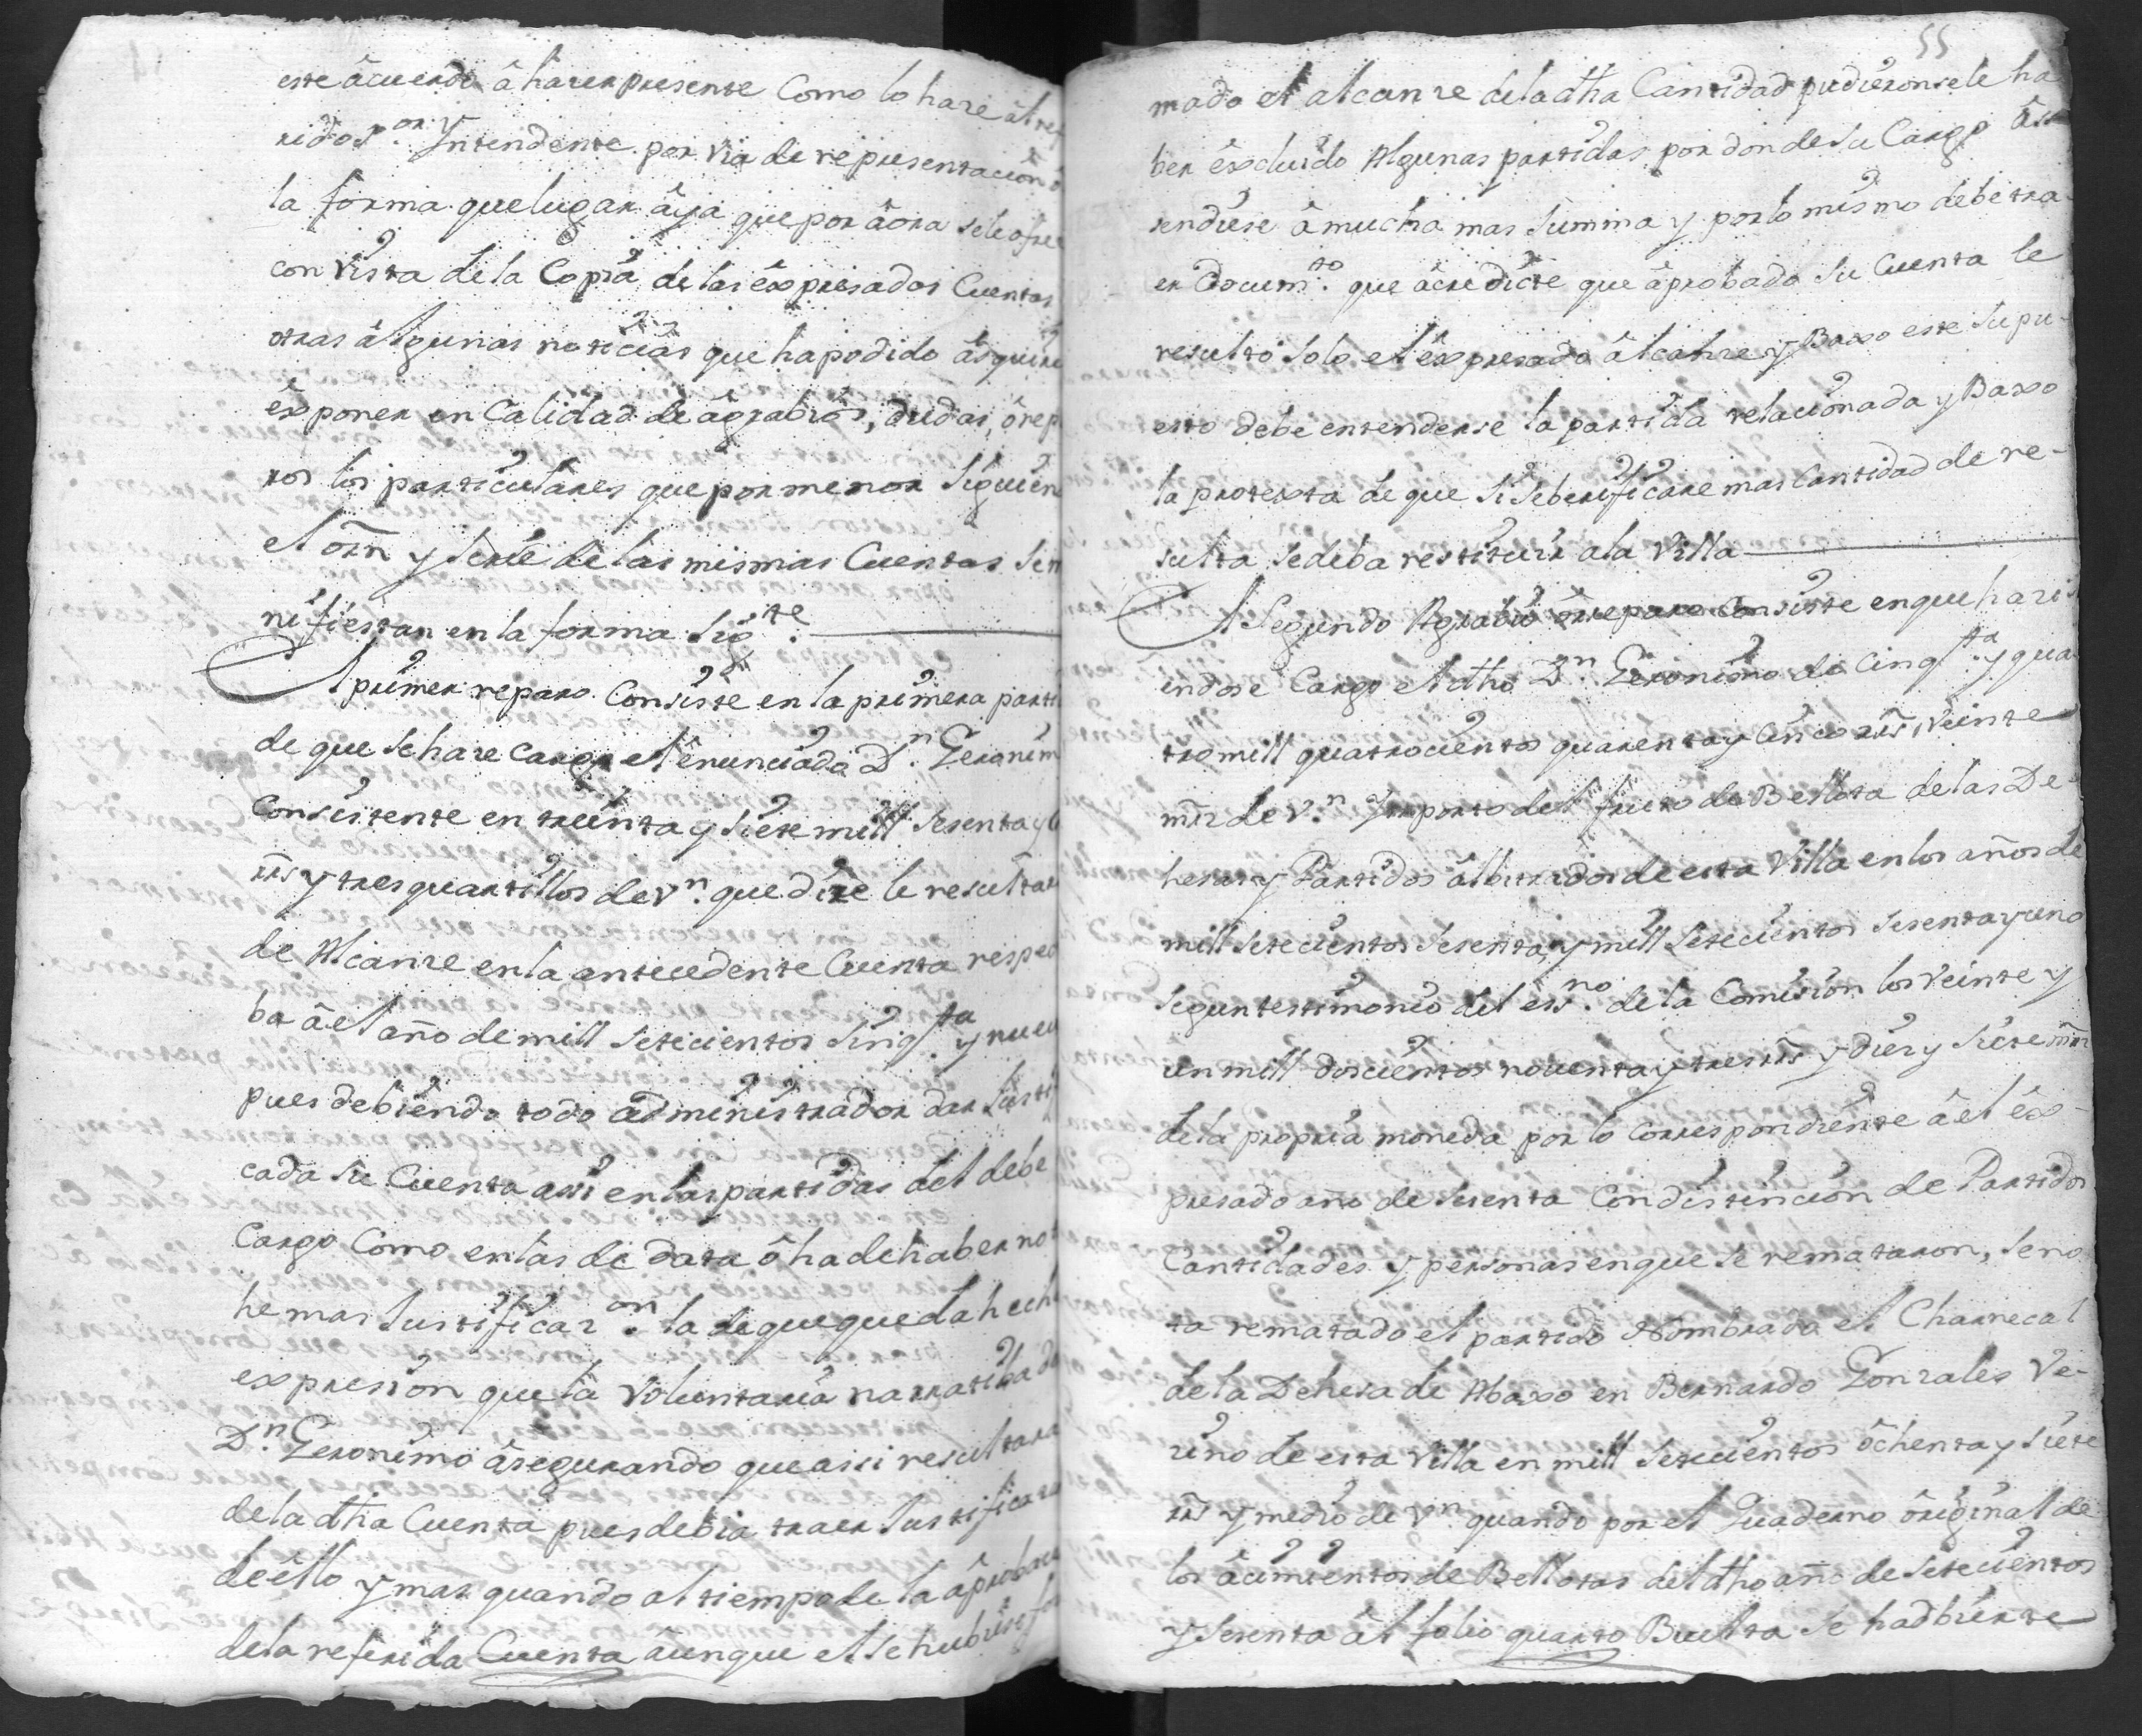 este âcuerdo â hazer presente Como lo haze âl ref
rido S.or Yntendente por via de representacion ô
la forma que lugar âya que por âora se le ofre
con Vista de la Copia de las êxpresadas Cuentas
otras âlgunas noticias que ha podido âdquirir
êxponer en Calidad de âgrabios, dudas, ô rep
ros los particulares que por menor Siguien
el orñ y Serie de las mismas Cuentas Se m
nifiestan en la forma Sig.te
Al primer reparo Consiste en la primera parti
de que Se haze cargo el ênunciado D.n Geronim
Consistente en treinta y Siete mill Sesenta y
rrs y tres quartillos de v.n que dize le resultar
de Alcanze en la antecedente Cuenta respec
ba â el año de mill Setecientos Sinq.ta y nuev
pues debiendo todo administrador dar Justi
cada su Cuenta assi en las partidas del debe
Cargo Como en las de data ô ha de haber no
he mas Justificaz.on la de que queda hecha
expresion que la Voluntaria narratiba de
D.n Geronimo âsegurando que assi resultara
de la dha Cuenta pues debia traer Justificaz
de êllo y mas quando al tiempo de la âprobaz
de la referida Cuenta âunque el Se hubiese for
55
mado el alcanze de la dha Cantidad pudieronsele ha
ber êxcluido Algunas partidas por donde Su Cargo âs
zendiese â mucha mas Summa y por lo mismo debe tra
er docum.to que âcredicte que âprobada Su Cuenta le
resultó Solo el êxpresado âlcanze y Baxo este Supu-
esto debe entenderse la partida relacionada y Baxo
la protexta de que Si Se berificare mas Cantidad de re-
sulta Se deba restituir a la Villa
Al Segundo Agrabio ô reparo Consiste en que hazi
endose Cargo el dho D.n Geronimo de Cinq.ta y qua
tro mill quatrocientos quarenta y Cinco rrs, Veinte
mrz de v.n Ymporto del fruto de Bellota de las De
hesas y Partidos âlbitrados de esta Villa en los años de
mill Setecientos Sesenta, y mill Setecientos Sesenta y uno
Segun testimonio del ess.no de la Comision los Veinte y
un mill doscientos noventa y tres rrs y diez y Siete mrz
de la propria moneda por lo Correspondiente â el êx-
presado año de Sesenta Con distincion de Partidos
Cantidades y personas en que Se remataron, Se no
ta rematado el partido Nombrado el Charnecal
de la Dehesa de Abaxo en Bernardo Gonzales Ve-
zino de esta Villa en mill Setecientos ôchenta y Siete
rrs y medio de V.n quando por el Quaderno ôriginal de
los âcimientos de Bellotas del dho año de Setecientos
y Sesenta âl folio quarto Buelta Se hadbierte